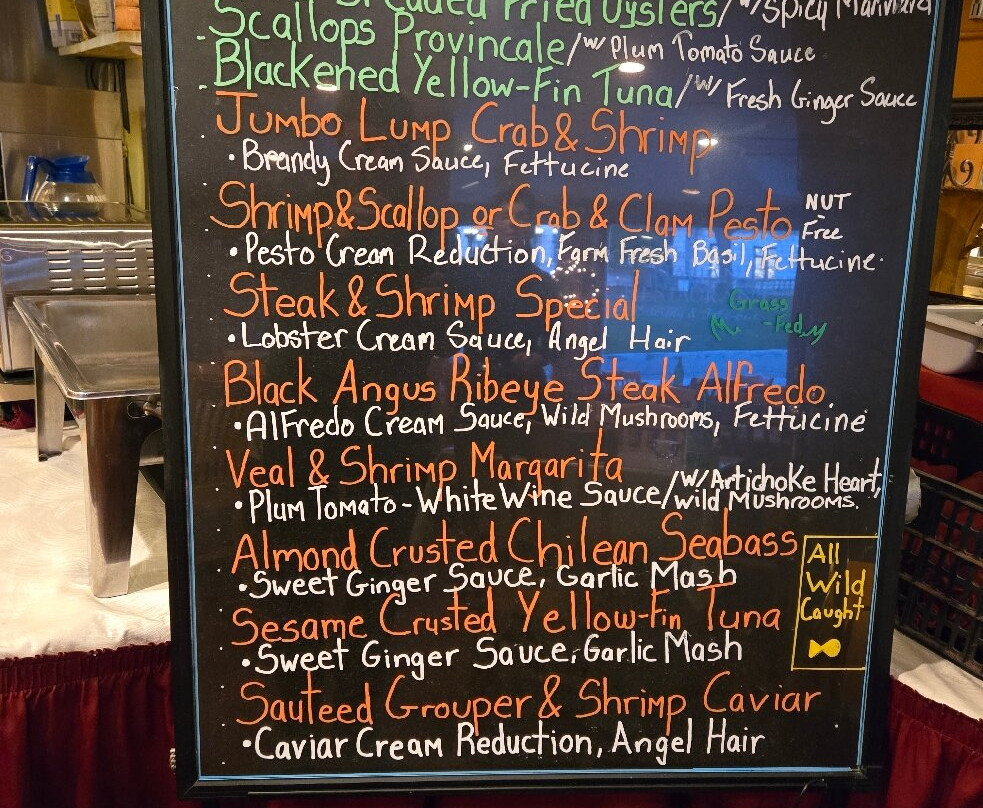 Breaded Fried Oysters/w/Spicy Marinara
Scallops Provincale/w/ Plum Tomato Sauce
Blackened Yellow-Fin Tuna/w/ Fresh Ginger Sauce
Jumbo Lump Crab & Shrimp
• Brandy Cream Sauce, Fettucine
Shrimp & Scallop or Crab & Clam Pesto NUT Free
• Pesto Cream Reduction, Farm Fresh Basil, Fettucine
Steak & Shrimp Special
Grass
-Fed
• Lobster Cream Sauce, Angel Hair
Black Angus Ribeye Steak Alfredo
• Alfredo Cream Sauce, Wild Mushrooms, Fettucine
Veal & Shrimp Margarita
• Plum Tomato-White Wine Sauce/w/Artichoke Heart,
Wild Mushrooms.
Almond Crusted Chilean Seabass
• Sweet Ginger Sauce, Garlic Mash
Sesame Crusted Yellow-Fin Tuna
• Sweet Ginger Sauce, Garlic Mash
All
Wild
Caught
Sauteed Grouper & Shrimp Caviar
• Caviar Cream Reduction, Angel Hair